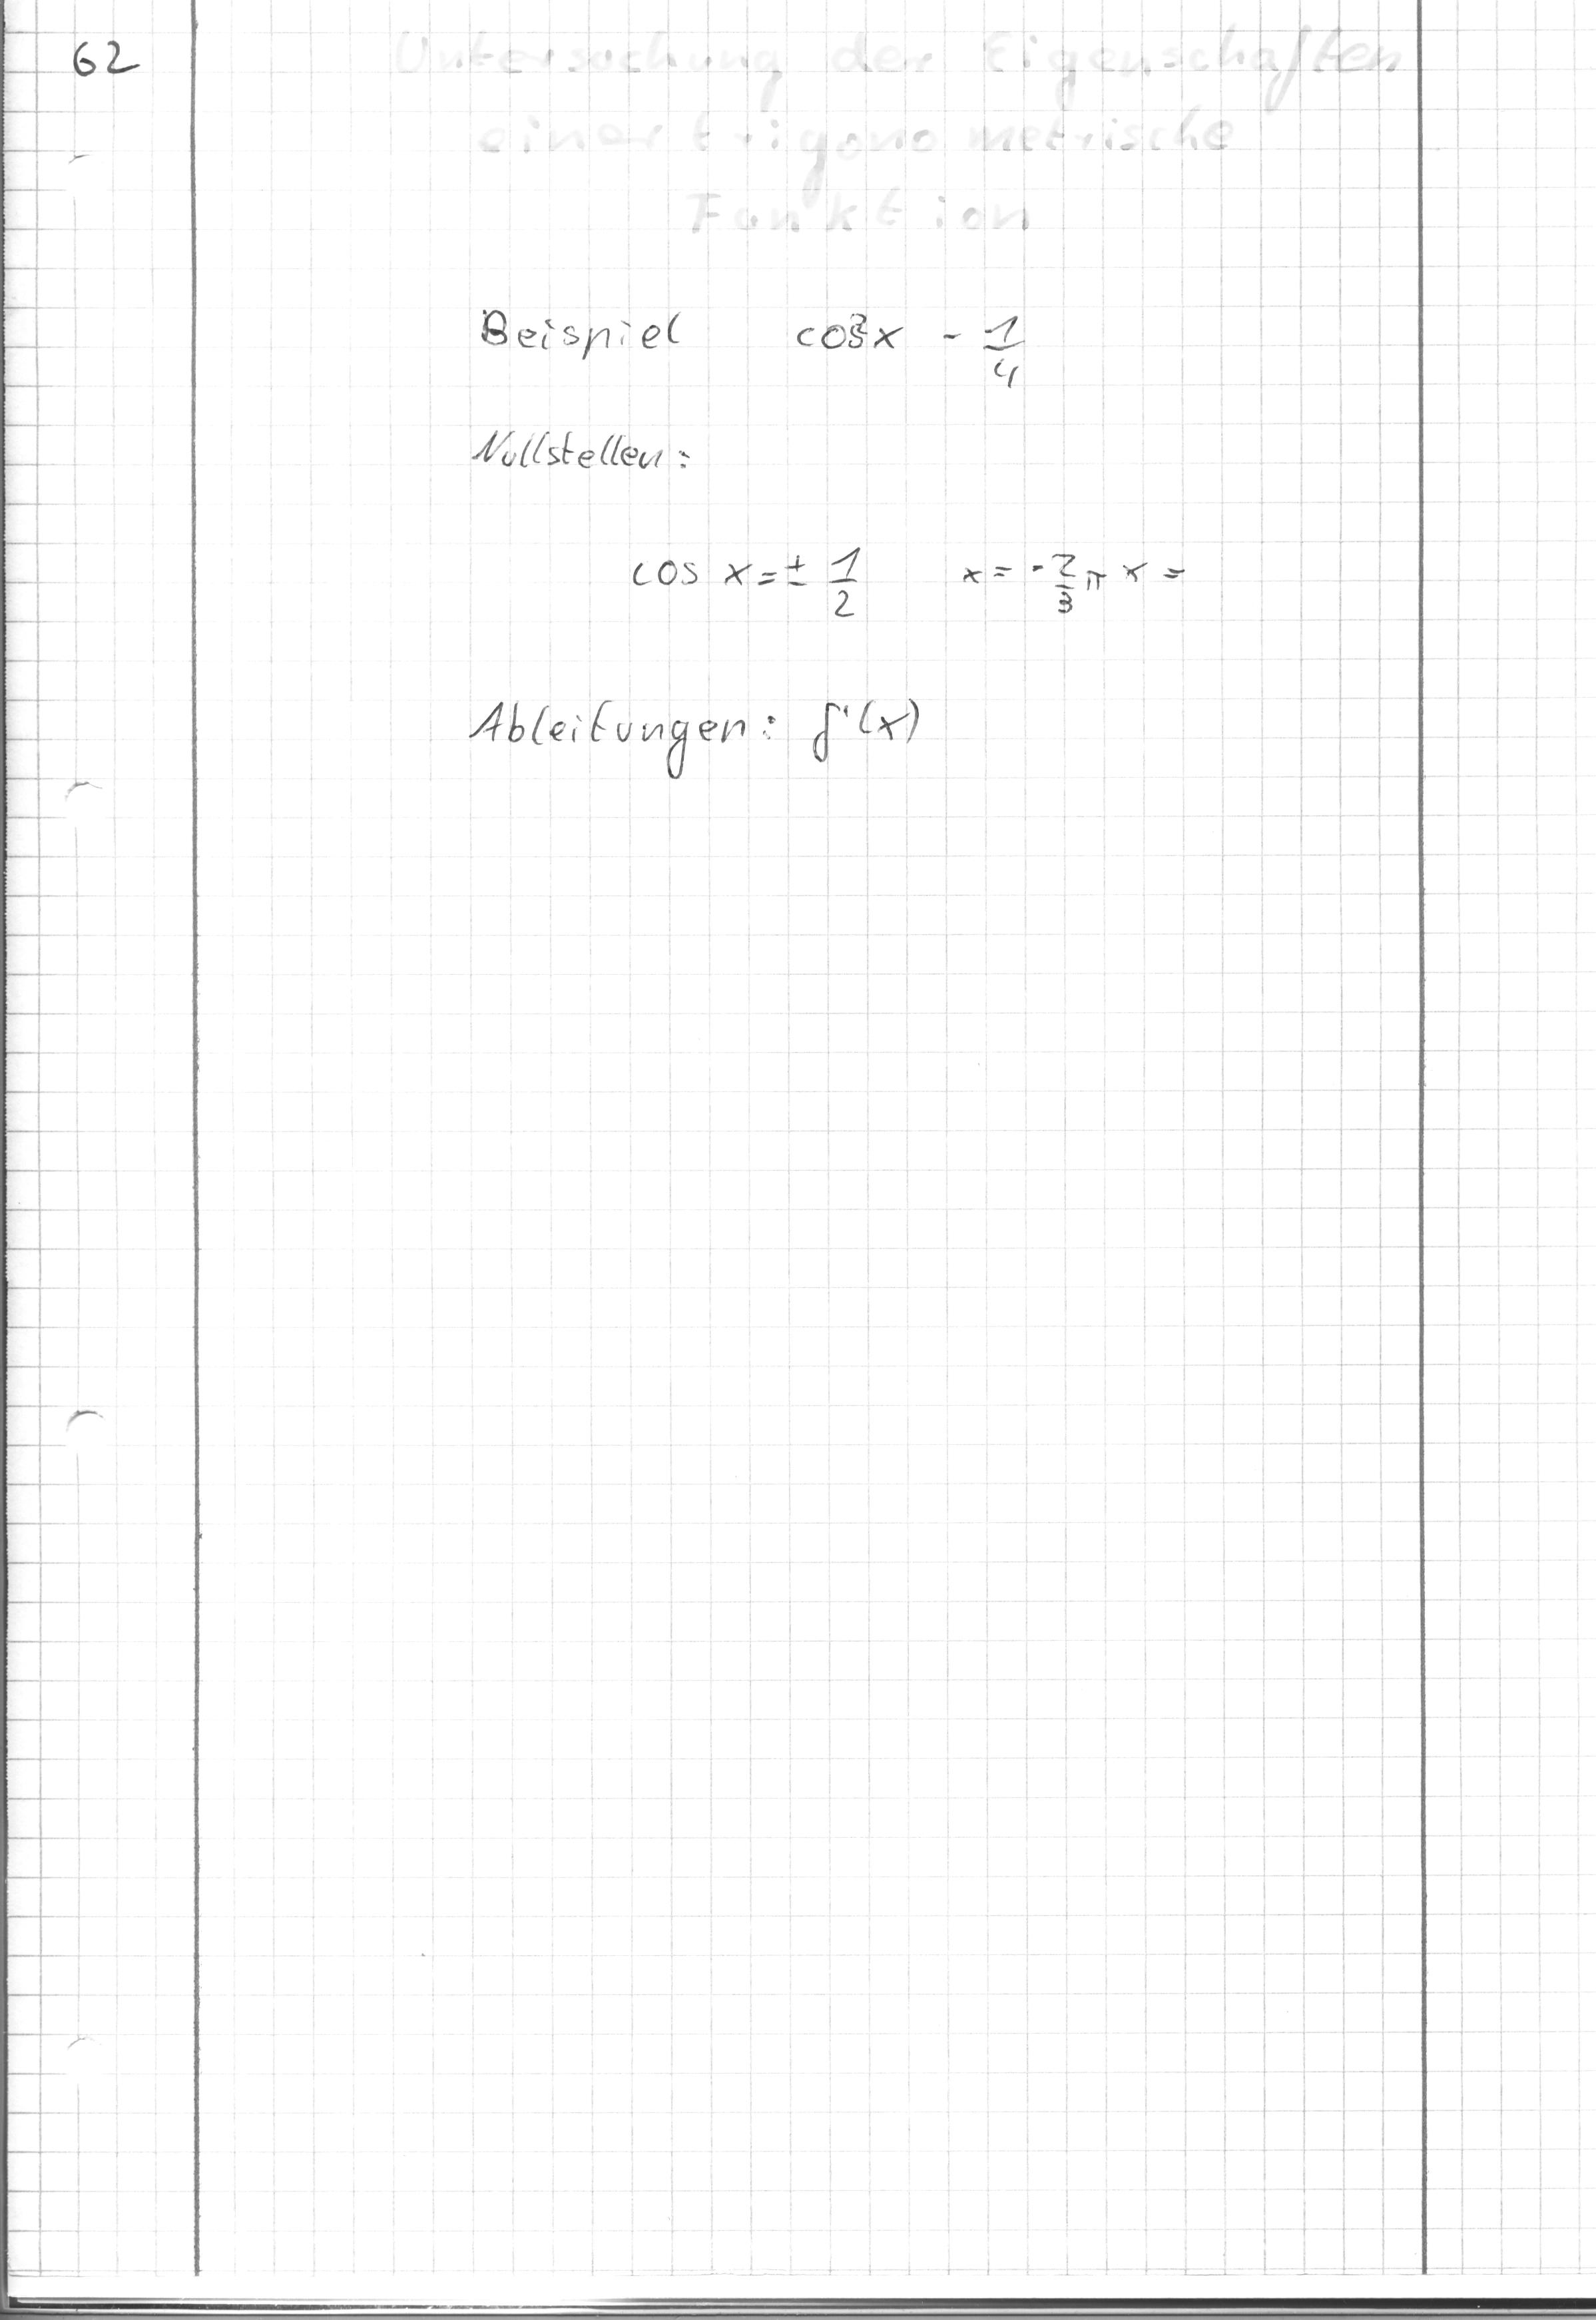 62
Untersuchung der Eigenschaften
einer trigonometrische
Funktion
Beispiel cos²x - 1/4
Nullstellen:
cos x = ± 1/2 x = - 2/3 π x =
Ableitungen: f'(x)